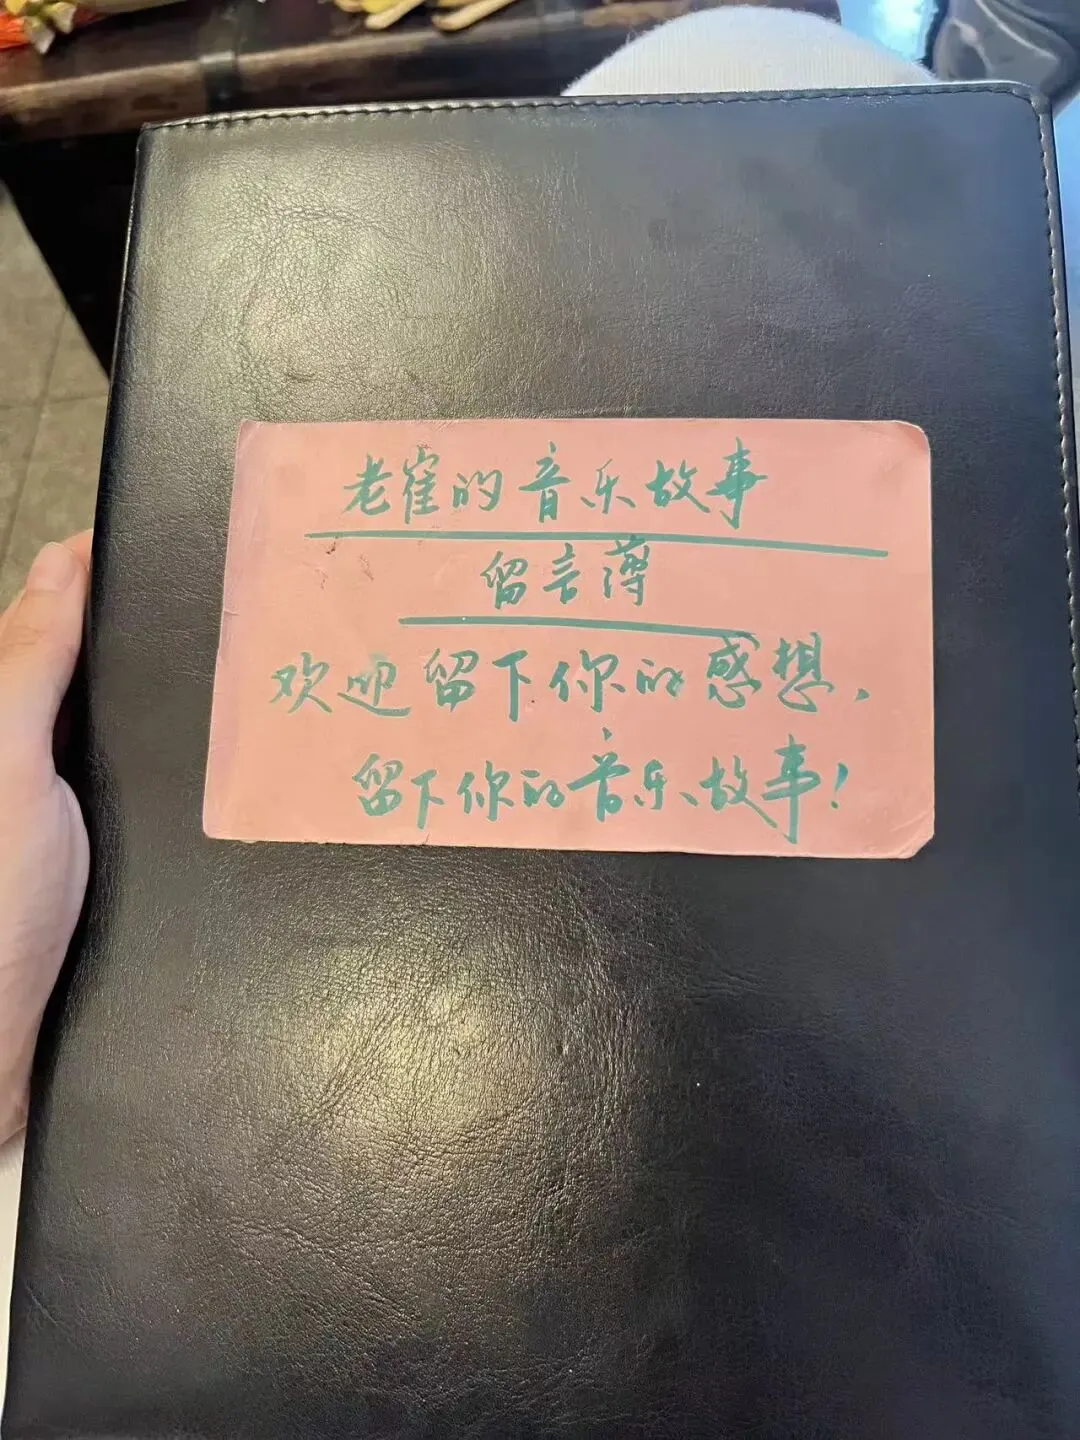 老崔的音乐故事
留言薄
欢迎留下你的感想、
留下你的音乐故事！